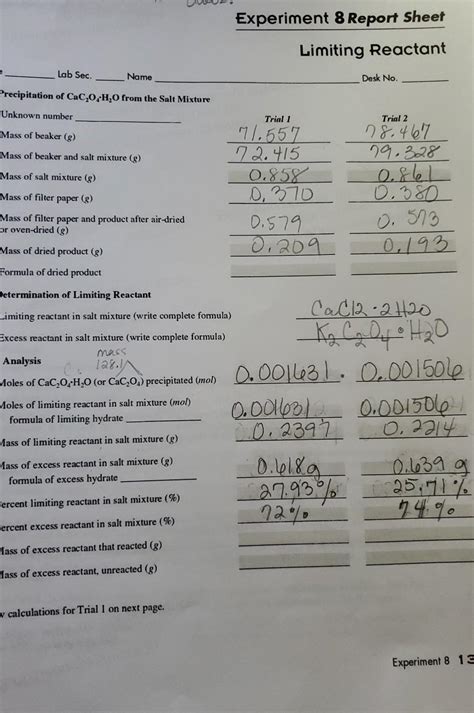 Experiment 8 Report Sheet
Limiting Reactant
Lab Sec. Name Desk No.
Precipitation of CaC₂O₄·H₂O from the Salt Mixture
Unknown number Trial 1 Trial 2
Mass of beaker (g) 71.557 78.467
Mass of beaker and salt mixture (g) 72.415 79.328
Mass of salt mixture (g) 0.858 0.861
Mass of filter paper (g) 0.370 0.380
Mass of filter paper and product after air-dried
or oven-dried (g) 0.579 0.573
Mass of dried product (g) 0.209 0.193
Formula of dried product
Determination of Limiting Reactant
Limiting reactant in salt mixture (write complete formula) CaCl2·2H2O
Excess reactant in salt mixture (write complete formula) K2C2O4·H2O
Analysis mass 128.1
Moles of CaC₂O₄·H₂O (or CaC₂O₄) precipitated (mol) 0.001631 0.001506
Moles of limiting reactant in salt mixture (mol) 0.001631 0.001506
formula of limiting hydrate
Mass of limiting reactant in salt mixture (g) 0.2397 0.2214
Mass of excess reactant in salt mixture (g) 0.618g 0.639 g
formula of excess hydrate
Percent limiting reactant in salt mixture (%) 27.93% 25.71%
Percent excess reactant in salt mixture (%) 72% 74%
Mass of excess reactant that reacted (g)
Mass of excess reactant, unreacted (g)
w calculations for Trial 1 on next page.
Experiment 8 13